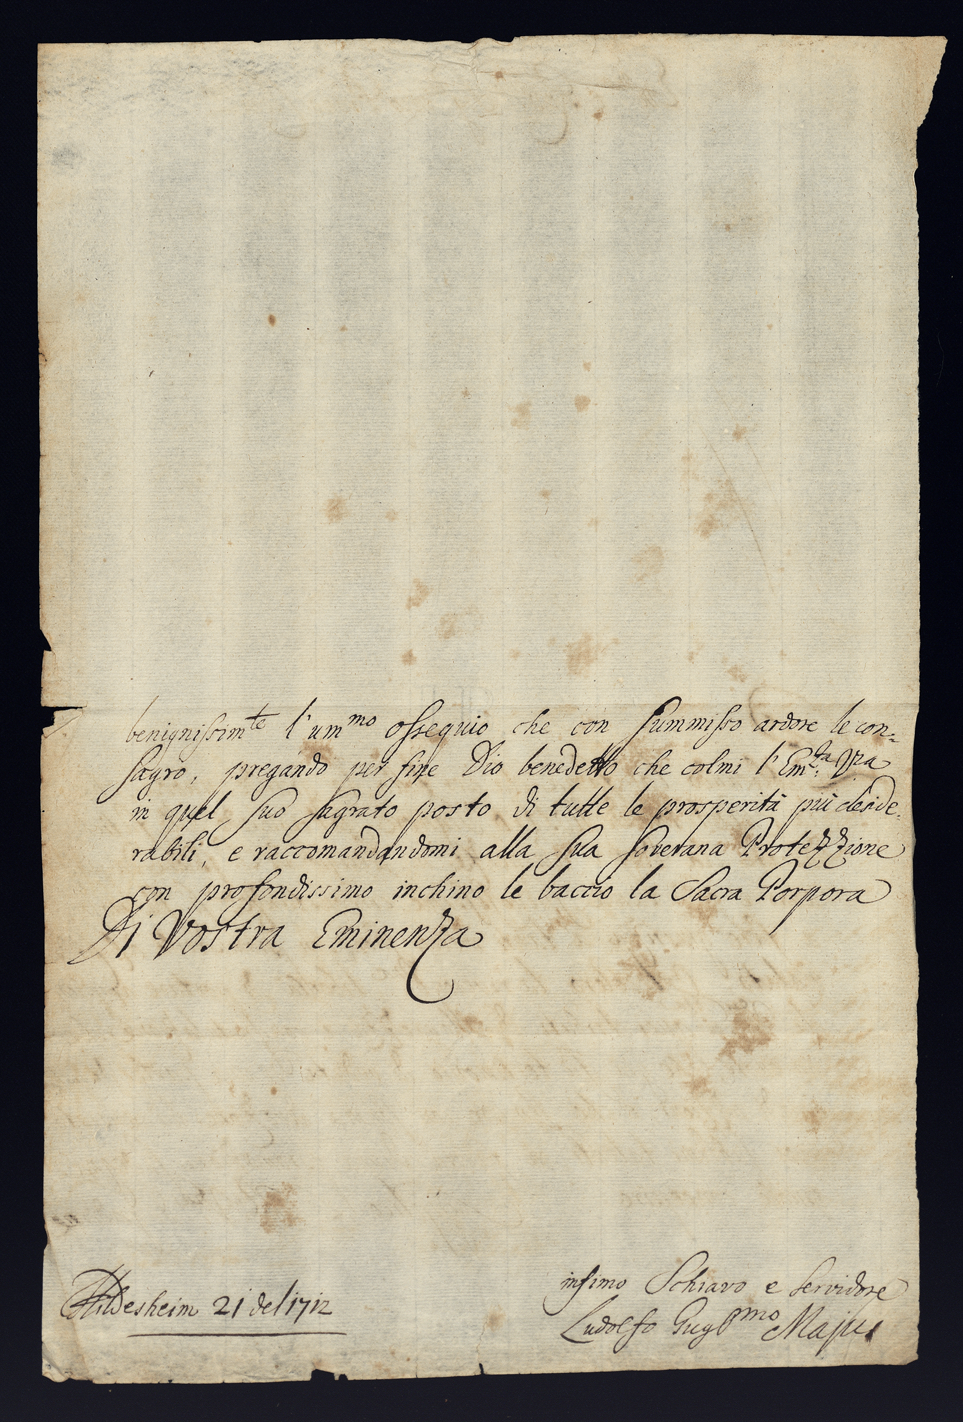 benignissimte l'ummo ossequio che con summisso ardore le con=
sagro, pregando per fine Dio benedetto che colmi l'Emza: Vra
in quel suo sagrato posto di tutte le prosperità più deside=
rabili, e raccomandandomi alla sua soverana Protezzione
con profondissimo inchino le baccio la Sacra Porpora
Di Vostra Eminenza
infimo Schiavo e servidore
Hildesheim 21 del 1712
Ludolfo Guglmo Majus